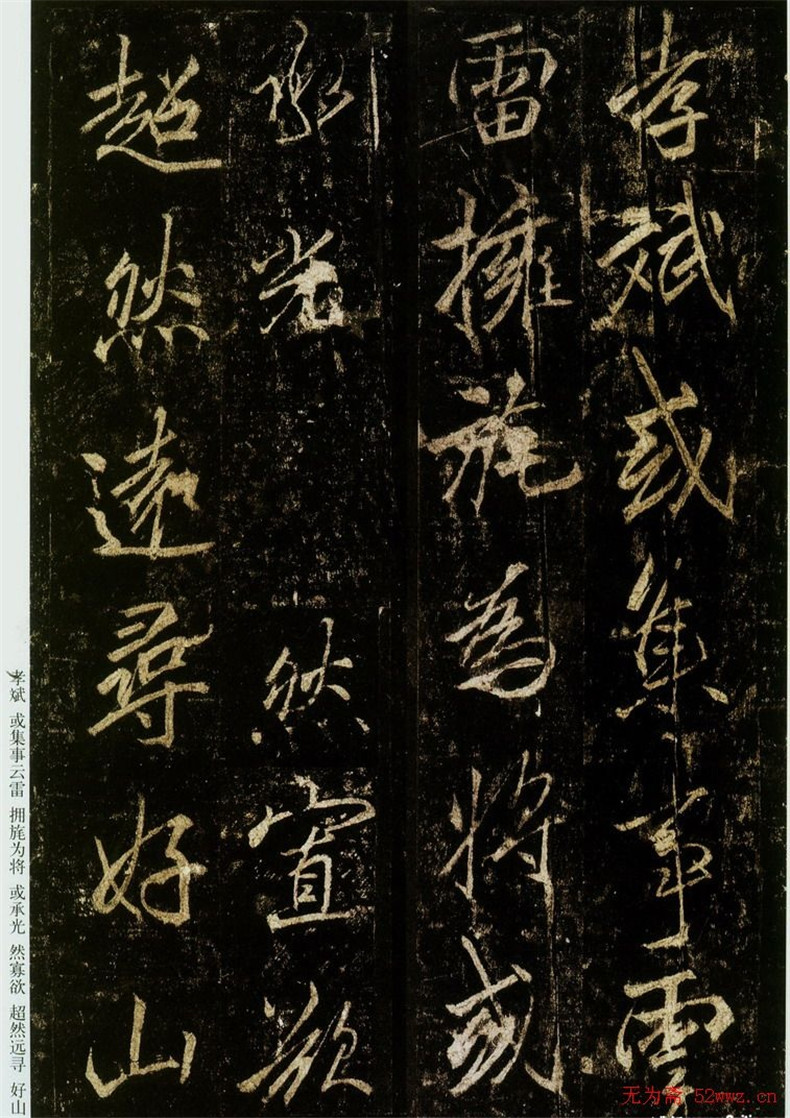 孝斌或集事雲
雷擁旄為將或
承光 然寡欲
超然遠尋好山
孝斌 或集事云雷 拥旄为将 或承光 然寡欲 超然远寻 好山
无为斋 52wwz.cn